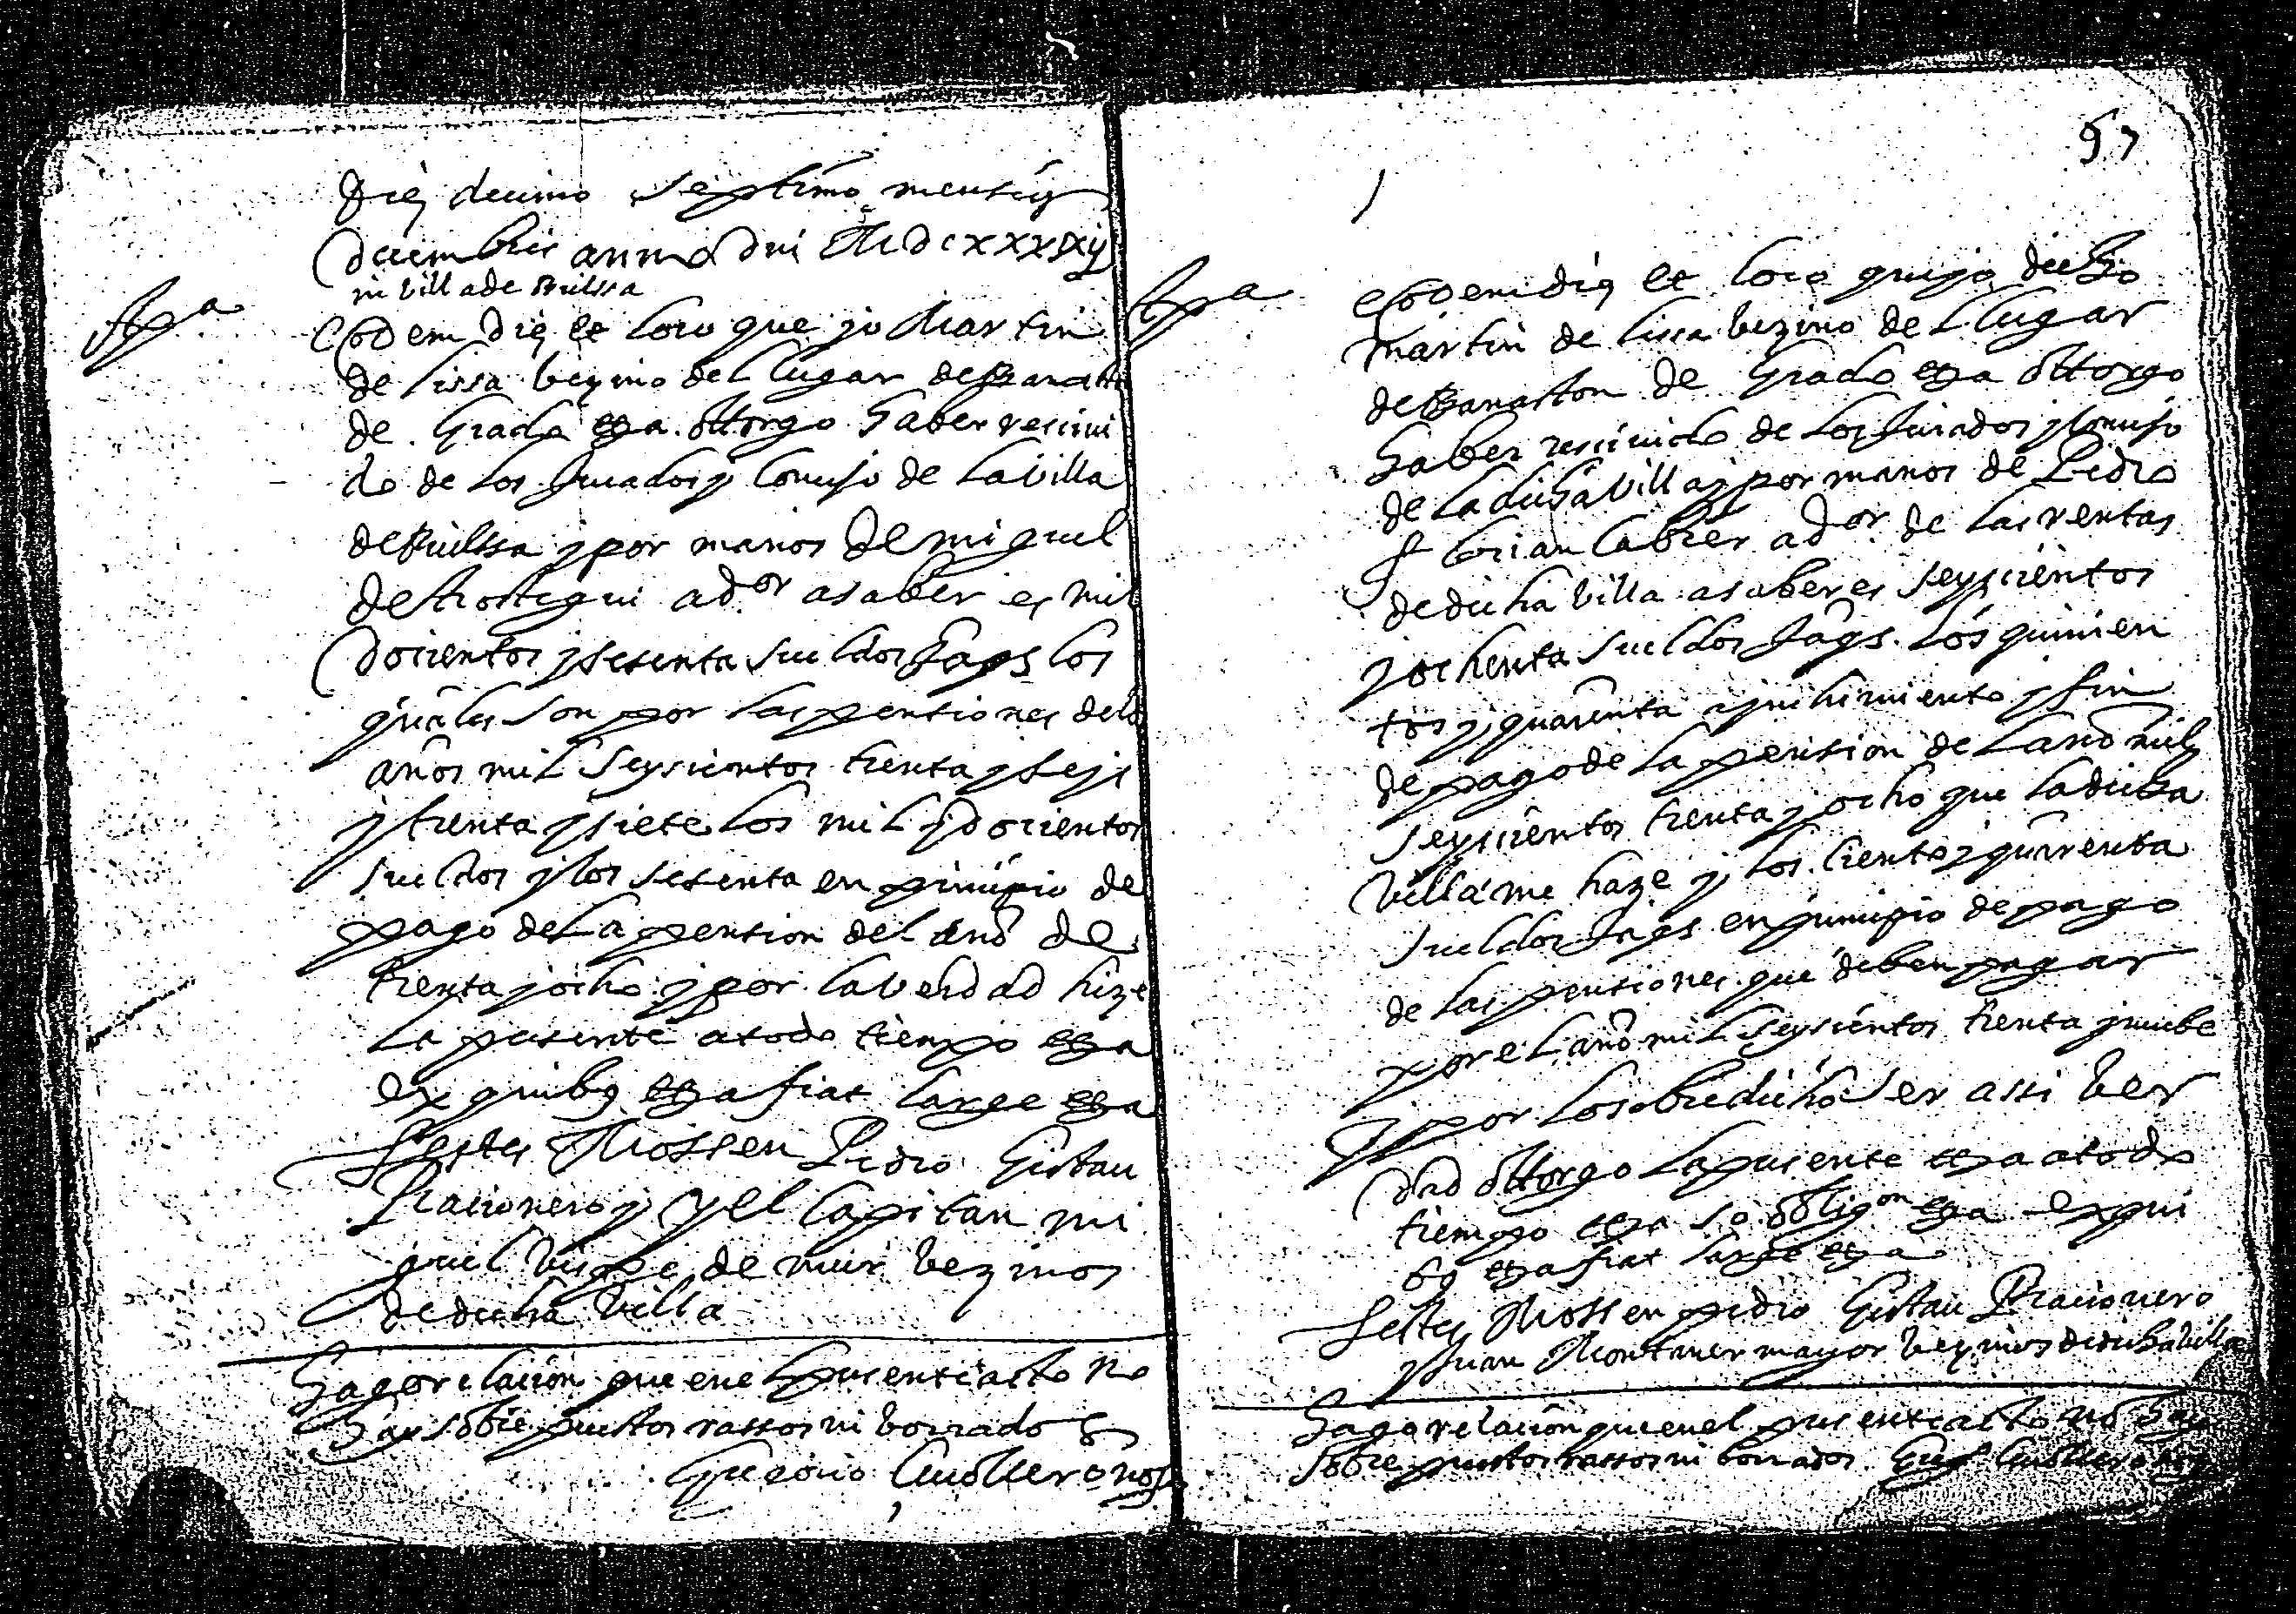 Die decimo septimo mensis
decembris anno dni MDCxxxxij
in villa de Bielssa
Apa
Eodem die et loco que yo Martin
de lissa bezino del lugar de Banasto
de Grado etza ottorgo haber reciui
do de los Jurados y Concejo de la villa
de Bielssa y por manos de miguel
de ador asaber es mil
docientos y sesenta sueldos Jaqs los
quales son por las pensiones de los
años mil seyscientos trenta y seys
y trenta y siete los mil y docientos
sueldos y los sesenta en principio de
pago de la pension del año de
trenta y ocho y por la verdad hize
la presente a todo tiempo etza
ex quibus etza fiat large etza
Testes Mossen Pedro Gistau
Racionero y el Capitan mi
guel de muir bezinos
de dicha villa
Hago relacion que en el presente acto no
hay sobre puestos rassos ni borrados
notº
57
Apa
Eodem die et loco que yo dicho
Martin de lissa bezino del lugar
de Banaston de Grado etza ottorgo
haber reciuido de los Jurados y Concejo
de la dicha villa y por manos de Pedro
ador de las rentas
de dicha villa asaber es seyscientos
y ochenta sueldos Jaqs. los quinien
tos y quarenta a cunplimiento y fin
de pago de la pension del año mil
seyscientos trenta y ocho que la dicha
villa me haze y los ciento y quarenta
sueldos Jaqs en principio de pago
de las pensiones que deben pagar
por el año mil seyscientos trenta y nuebe
y por lo sobredicho ser assi ber
dad ottorgo la presente etza a todo
tiempo etza so obligon etza ex qui
bus etza fiat large etza
Testes Mossen pedro Gistau Racionero
y Juan Montaner mayor bezinos de dicha villa
Hago relacion que en el presente acto no hay
sobre puestos rassos ni borrados